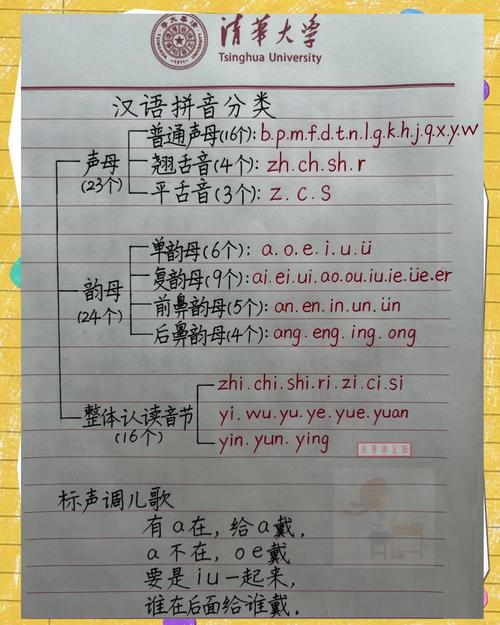 清华大学
Tsinghua University
汉语拼音分类
普通声母(16个): b.p.m.f.d.t.n.l.g.k.h.j.q.x.y.w
声母 翘舌音(4个): zh.ch.sh.r
(23个)
平舌音(3个): z.c.s
单韵母(6个): a.o.e.i.u.ü
韵母 复韵母(9个): ai.ei.ui.ao.ou.iu.ie.üe.er
(24个) 前鼻韵母(5个): an.en.in.un.ün
后鼻韵母(4个): ang.eng.ing.ong
zhi.chi.shi.ri.zi.ci.si
整体认读音节 yi.wu.yu.ye.yue.yuan
(16个) yin.yun.ying
标声调儿歌
有a在，给a戴，
a不在，oe戴
要是iu一起来，
谁在后面给谁戴．